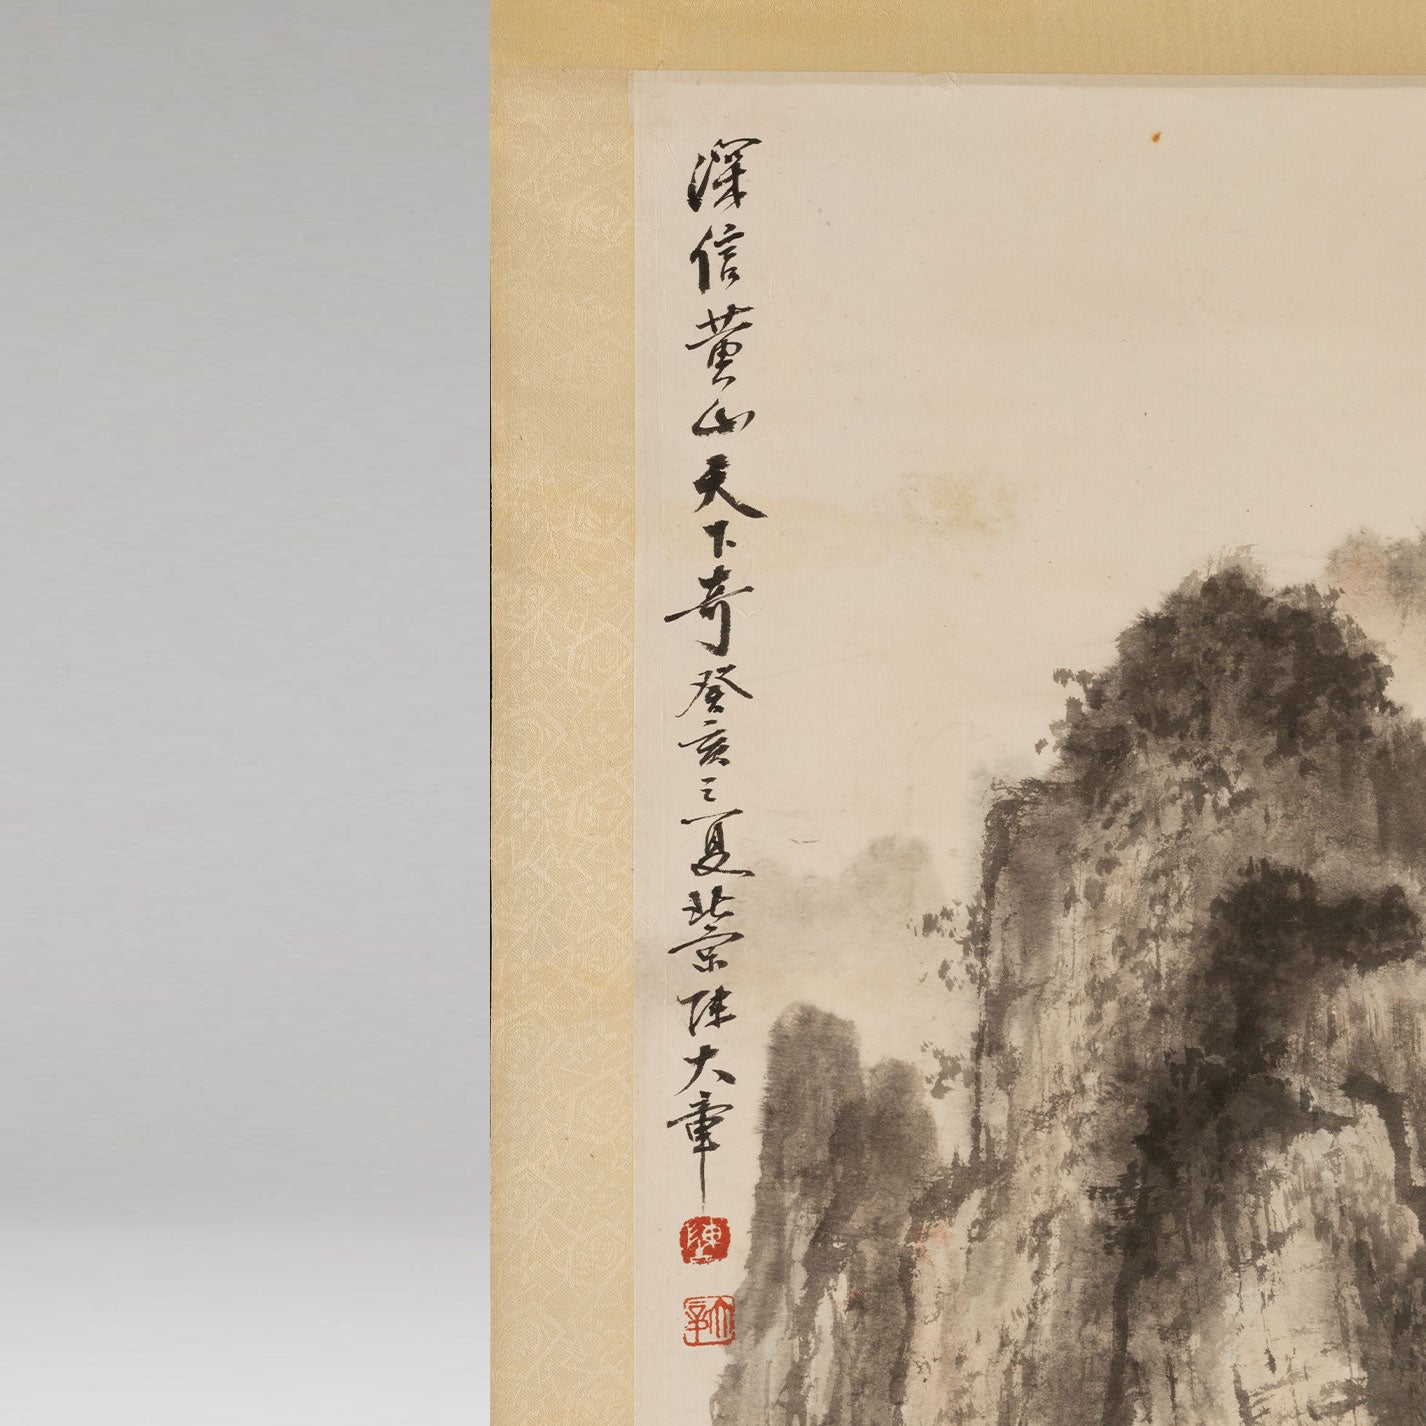 深信黄山天下奇癸亥之夏北京陈大章
陳
大章